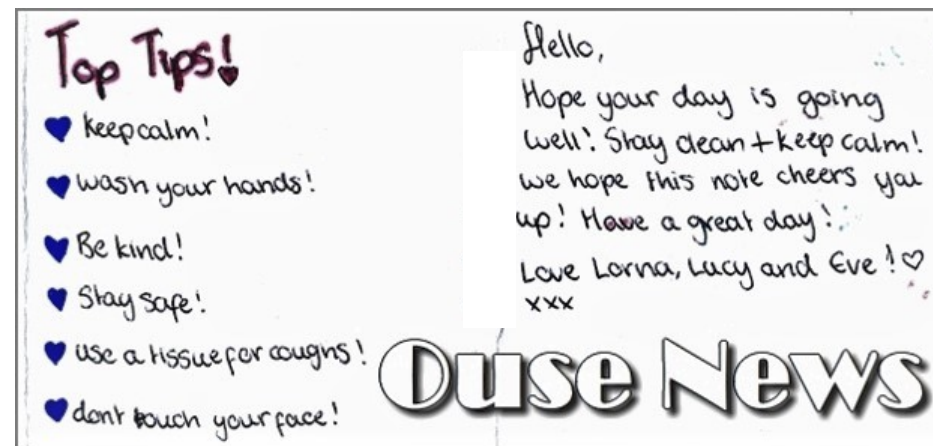 Top Tips!
keep calm!
wash your hands!
Be kind!
Stay safe!
use a tissue for coughs!
dont touch your face!
Hello,
Hope your day is going
well! Stay clean + keep calm!
we hope this note cheers you
up! Have a great day!
Love Lorna, Lucy and Eve! ♡
xxx
Ouse News